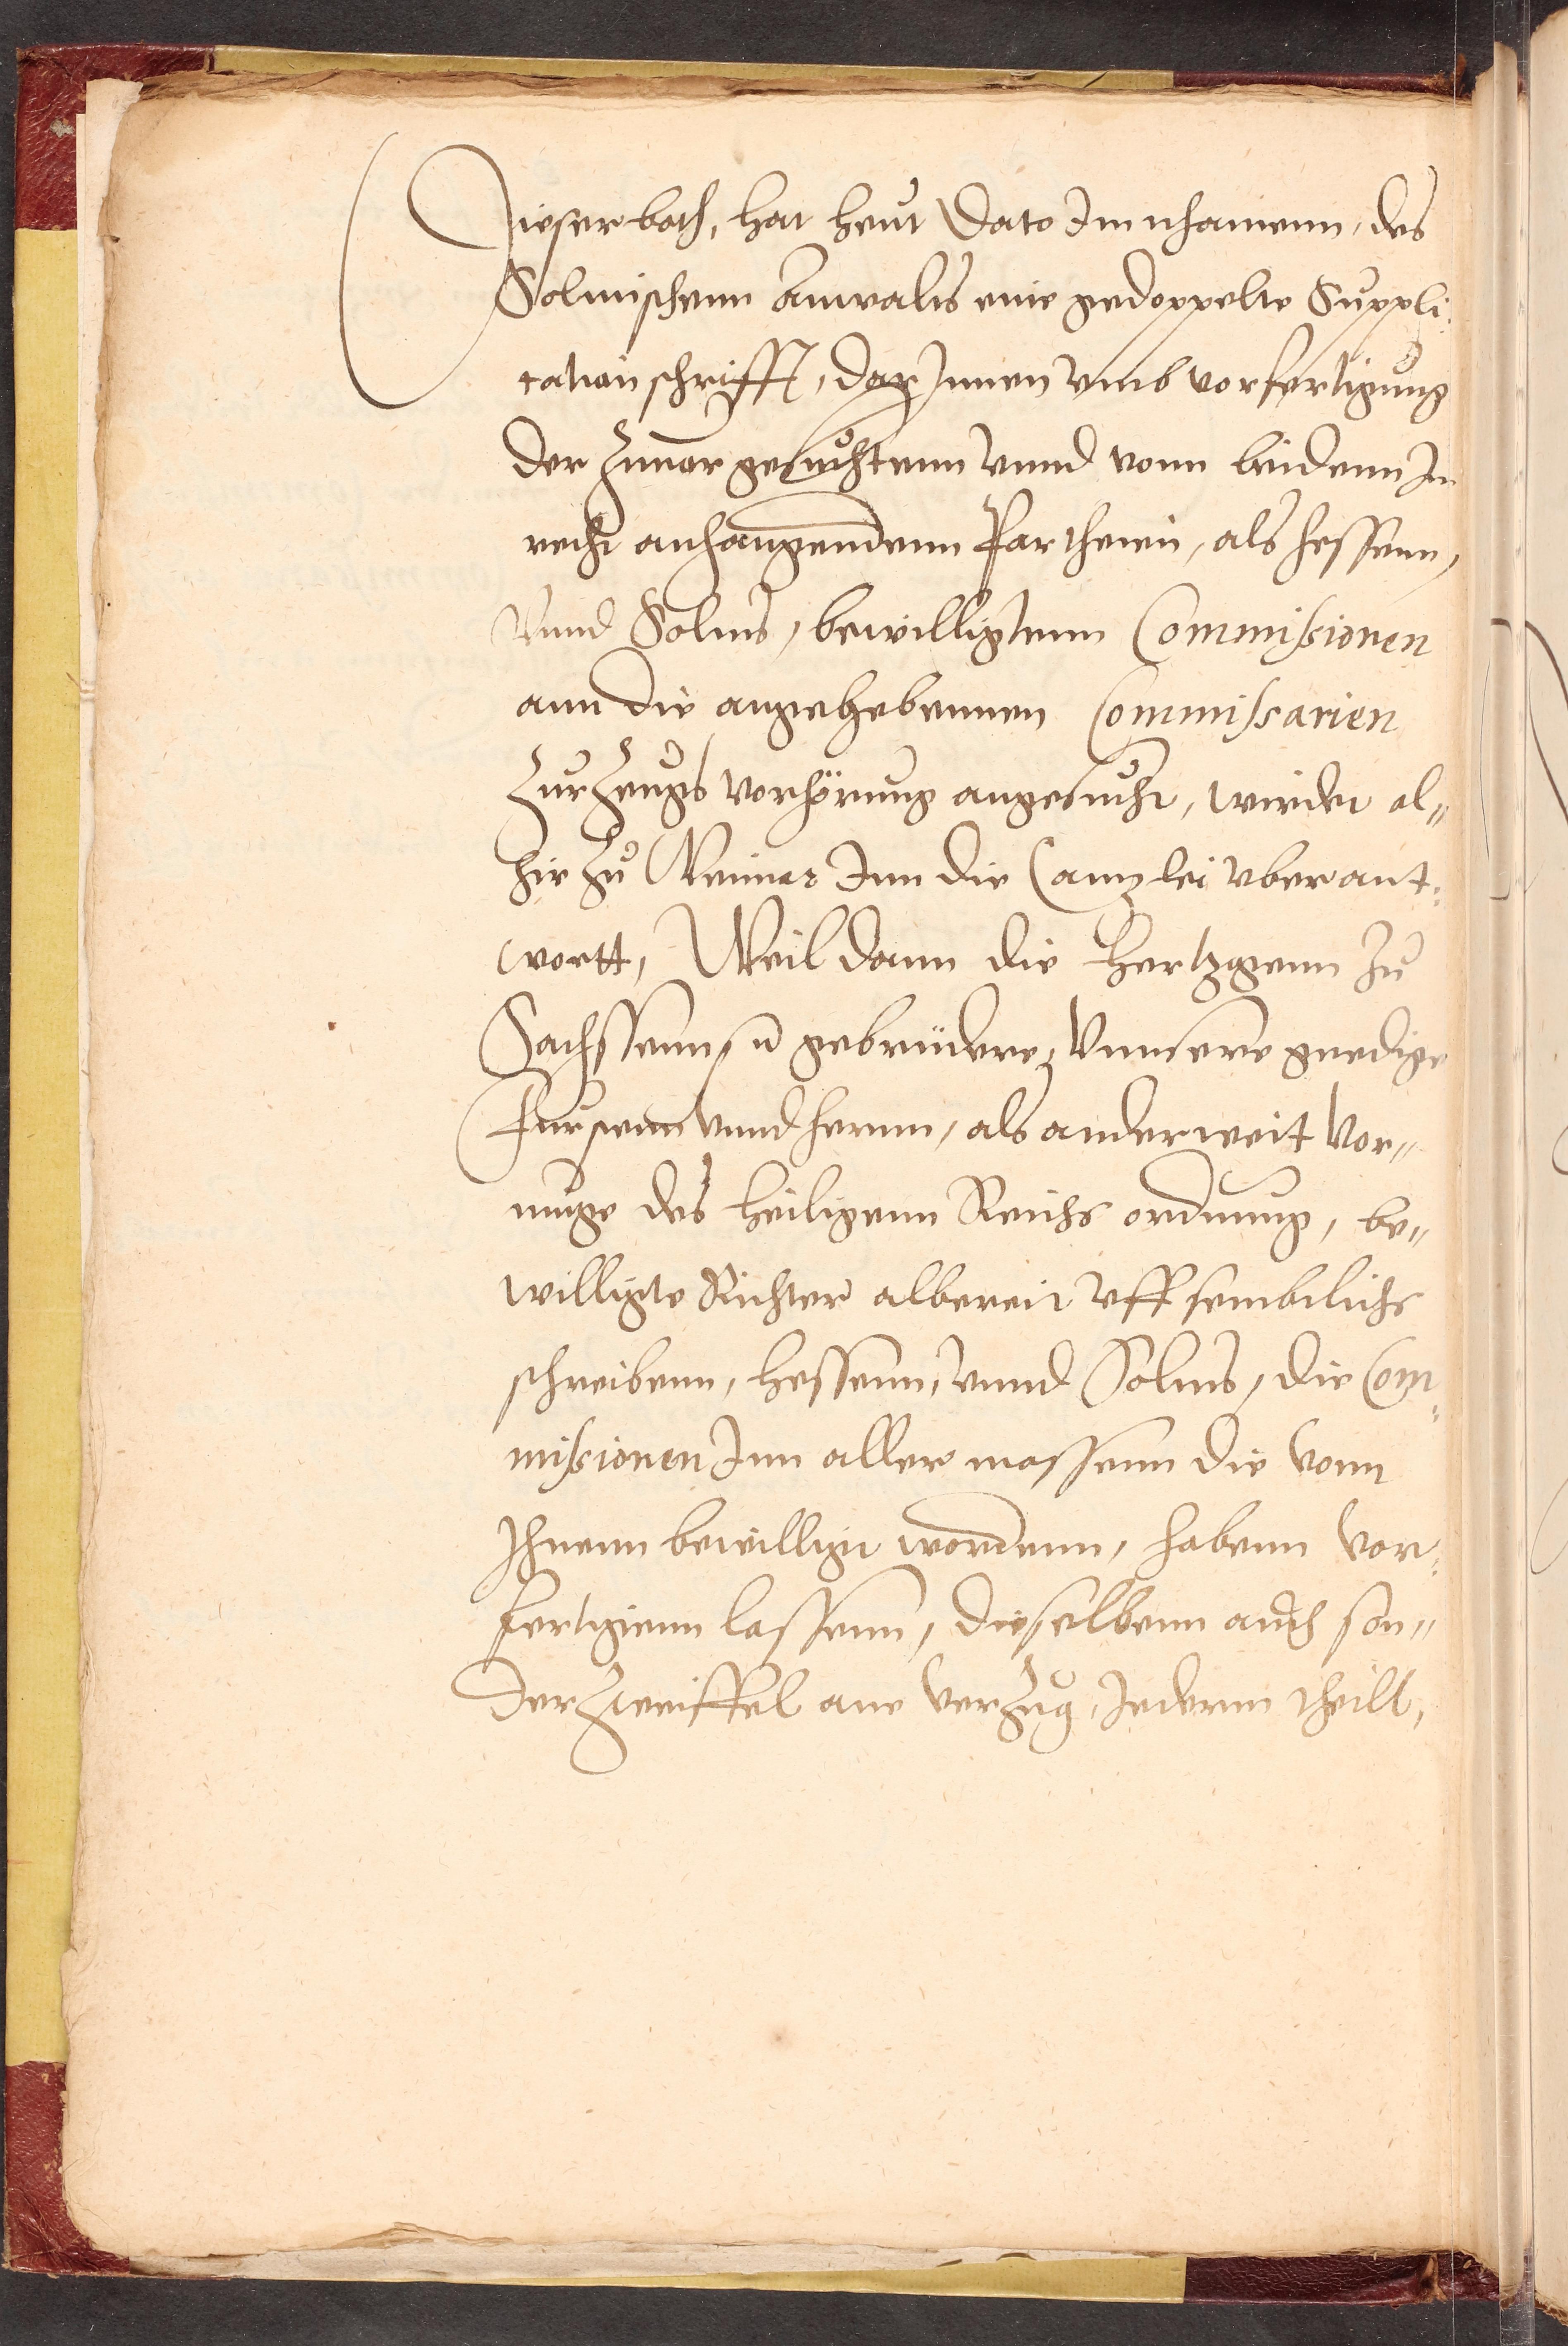 Dieser both, hat heut dato Im nhamenn, des
Solmischenn Anwalts eine gedoppelte Suppli-
cation schrifft, dar Innen vmb vorfertigung
der Zuuor gesuchtenn vnnd vonn beidenn Im
recht anhangendenn Partheien, als hessenn,
Vnnd Solms, bewilligtenn Commissionen
ann die angegebennen Commissarien
Zur Zeugs vorhörung angesucht, wider al-
hir Zu Weimar Inn die Cantzlei vberant-
wortt, Weil dann die Hertzogenn Zu
Sachssenn, gebrüdere, Vnnsere gnedige
Furstenn vnnd hernn, als anderweit Vor-
muge des heiligenn Reichs ordnung, be-
willigte Richter albereit vff sembtlichs
schreibenn, hessenn, vnnd Solms, die Com-
missionen Inn aller massenn die vonn
Ihnenn bewilligt wordenn, habenn vor-
fertigenn lassenn, dieselbenn auch son-
der Zweiffel ane verzug, Iedernn theill,